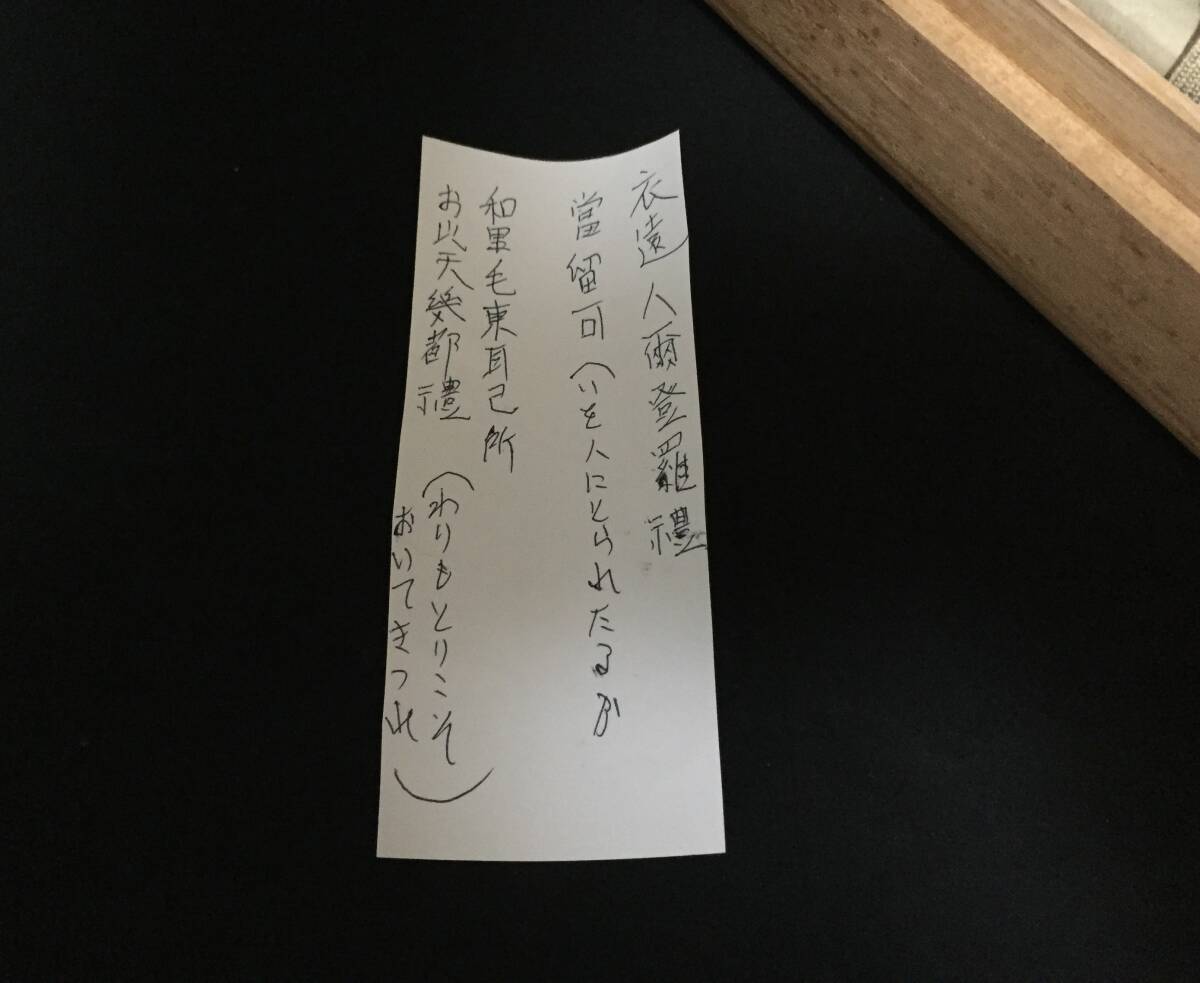 衣遠人爾登羅禮
當留可(いを人にとられたるか
和里毛東耳己所
お以天幾都禮
(わりもとりこそ
おいてきつれ)